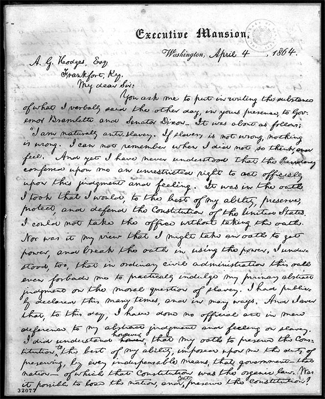 Executive Mansion,
Washington, April 4, 1864.
A. G. Hodges, Esq
Frankfort, Ky.
My dear Sir:
You ask me to put in writing the substance
of what I verbally said the other day, in your presence, to Gov-
ernor Bramlette and Senator Dixon. It was about as follows:
"I am naturally anti-slavery. If slavery is not wrong, nothing
is wrong. I can not remember when I did not so think, and
feel. And yet I have never understood that the Presidency
conferred upon me an unrestricted right to act officially
upon this judgment and feeling. It was in the oath
I took that I would, to the best of my ability, preserve,
protect, and defend the Constitution of the United States.
I could not take the office without taking the oath.
Nor was it my view that I might take an oath to get
power, and break the oath in using the power. I under-
stood, too, that in ordinary civil administration this oath
even forbade me to practically indulge my primary abstract
judgment on the moral question of slavery. I had public-
ly declared this many times, and in many ways. And I aver
that, to this day, I have done no official act in mere
deference to my abstract judgment and feeling on slavery.
I did understand however, that my oath to preserve the Consti-
tution to the best of my ability, imposed upon me the duty of
preserving, by every indispensable means, that government—that
nation—of which that Constitution was the organic law. Was
it possible to lose the nation, and yet preserve the Constitution?
32077